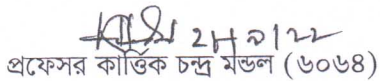 প্রফেসর কার্ত্তিক চন্দ্র মন্ডল (৬০৬৪)